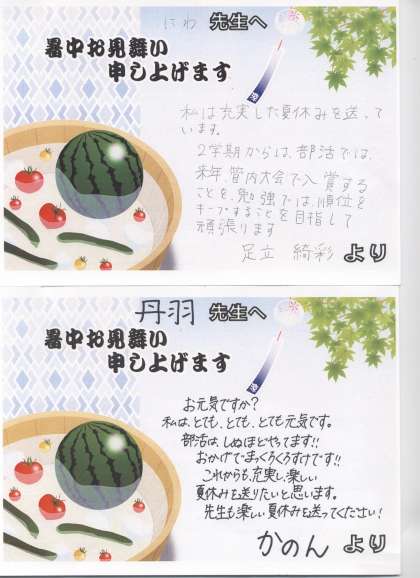 にわ 先生へ
暑中お見舞い
申し上げます
涼
私は充実した夏休みを送って
います。
2学期からは、部活では、
来年、管内大会で入賞する
ことを、勉強では、順位を
キープすることを目指して
頑張ります
足立 綺彩 より
丹羽 先生へ
暑中お見舞い
申し上げます
涼
お元気ですか?
私は、とても、とても、とても元気です。
部活は、しぬほどやってます!!
おかげでまっくろくろすけです!!
これからも、充実し、楽しい
夏休みを送りたいと思います。
先生も楽しい夏休みを送ってください!
かのん より